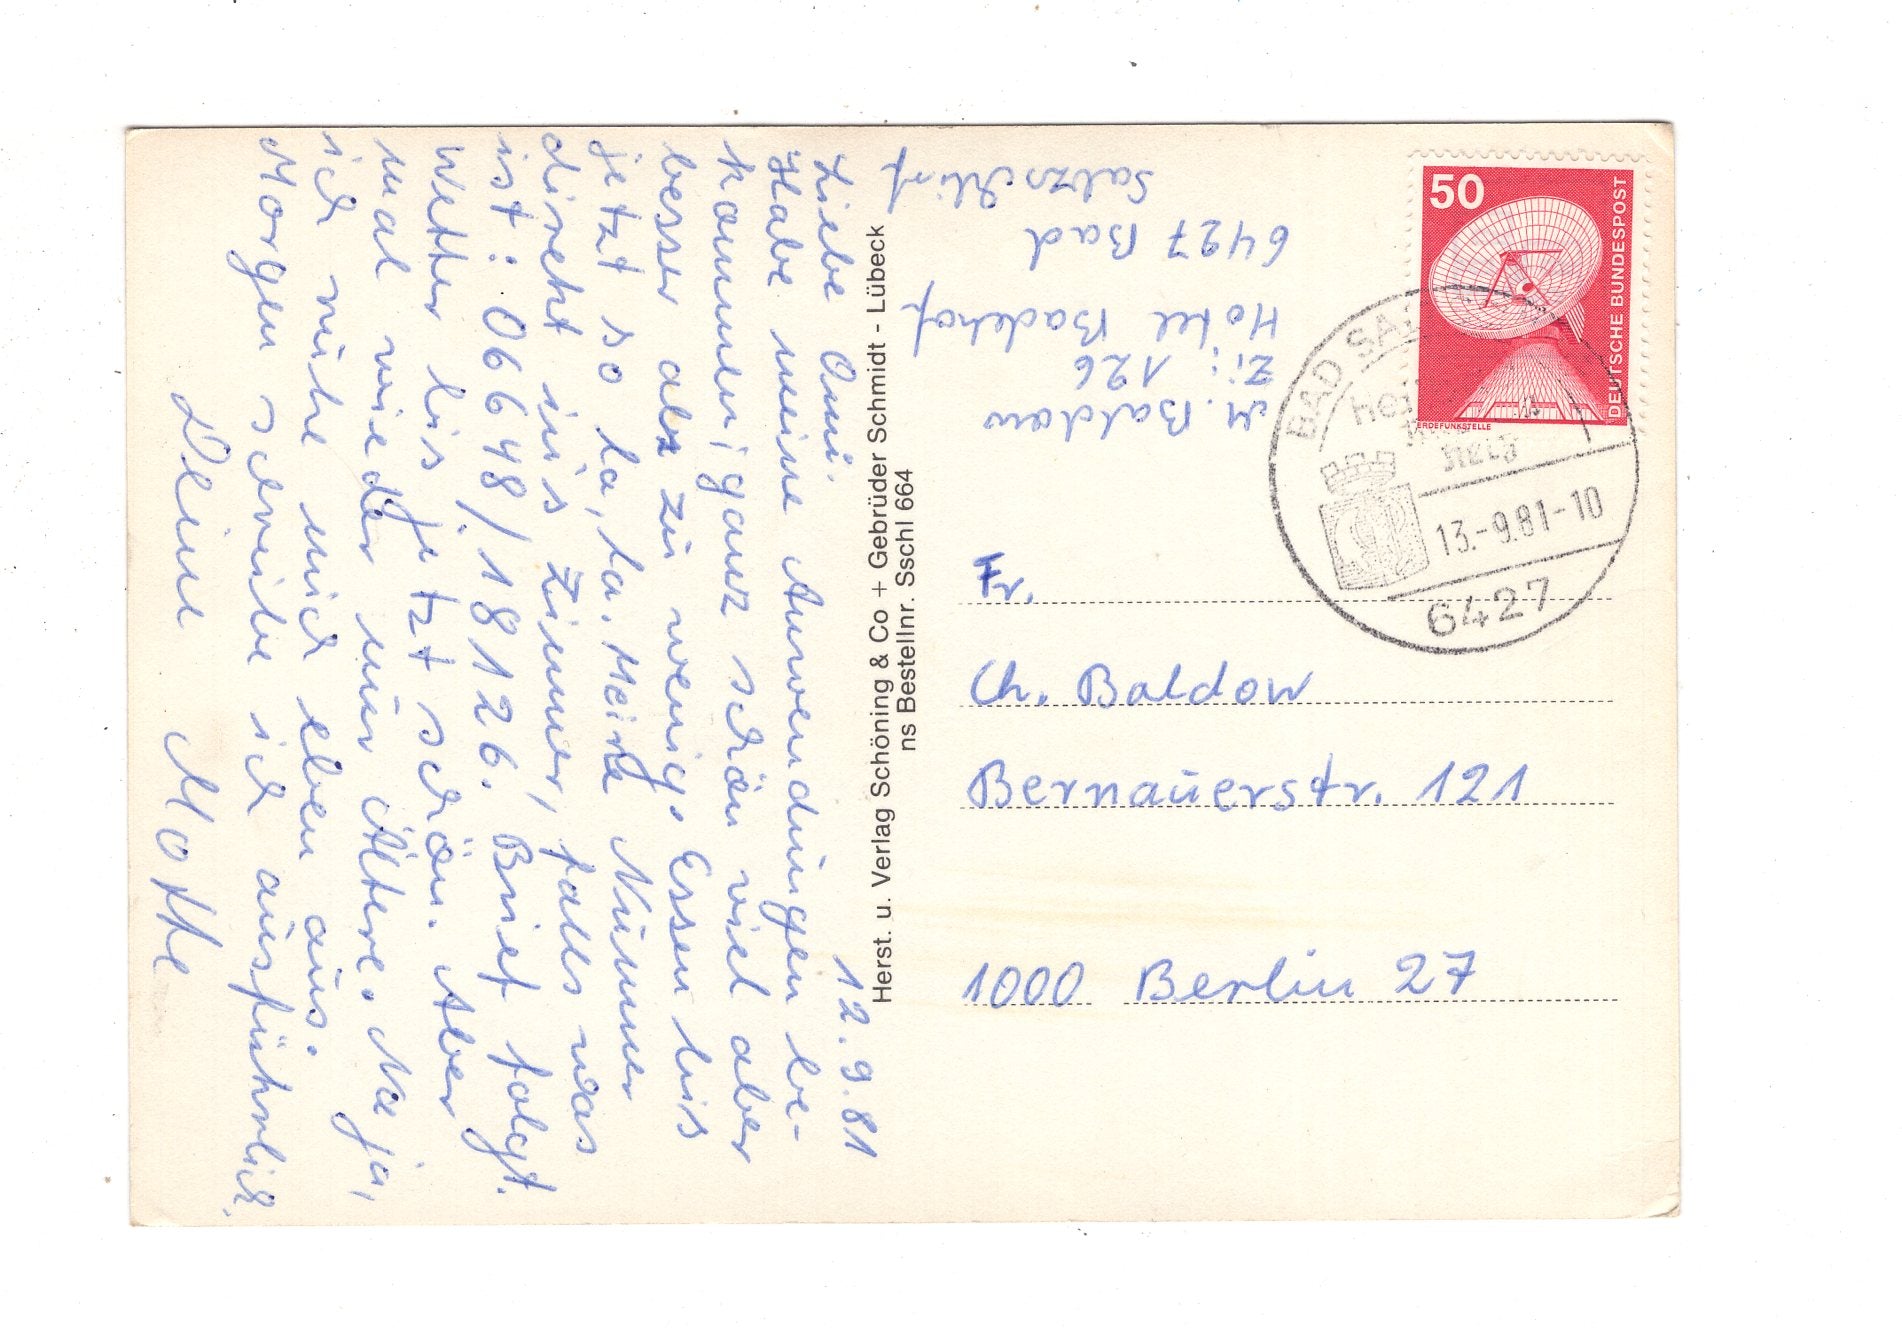 12.9.81
Liebe Omi.
Habe meine Anwendungen be-
kommen, ganz schön viel aber
besser als zu wenig. Essen bis
jetzt so la, la. Meine Nummer
direkt ins Zimmer, falls was
ist: 06648/18126. Brief folgt.
Wetter bis jetzt schön. Aber
mal wieder nur Ältere. Na ja,
ich ruhe mich eben aus.
Morgen schreibe ich ausführlich.
Deine Motte
Herst. u. Verlag Schöning & Co + Gebrüder Schmidt - Lübeck
ns Bestellnr. Sschl 664
M. Baldow
Zi: 126
Hotel Badehof
6427 Bad
Salzschlirf
50
DEUTSCHE BUNDESPOST
ERDEFUNKSTELLE
BAD SA
13.-9.81-10
6427
Fr.
Ch. Baldow
Bernauerstr. 121
1000 Berlin 27